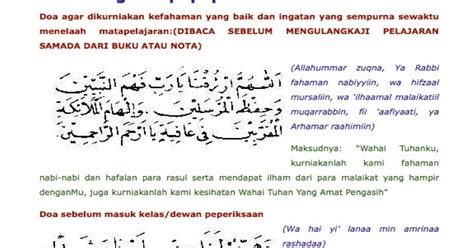 Doa agar dikurniakan kefahaman yang baik dan ingatan yang sempurna sewaktu
menelaah matapelajaran:(DIBACA SEBELUM MENGULANGKAJI PELAJARAN
SAMADA DARI BUKU ATAU NOTA)
اَللّٰهُمَّ ارْزُقْنَا يَا رَبِّ فَهْمَ النَّبِيِّيْنَ
وَحِفْظَ الْمُرْسَلِيْنَ. وَإِلْهَامَ الْمَلَائِكَةِ
الْمُقَرَّبِيْنَ فِي عَافِيَةٍ يَا أَرْحَمَ الرَّاحِمِيْنَ
(Allahummar zuqna, Ya Rabbi
fahaman nabiyyiin, wa hifzaal
mursaliin, wa 'ilhaamal malaikatiil
muqarrabbin, fii 'aafiyaati, ya
Arhamar raahimiin)
Maksudnya: "Wahai Tuhanku,
kurniakanlah kami fahaman
nabi-nabi dan hafalan para rasul serta mendapat ilham dari para malaikat yang hampir
denganMu, juga kurniakanlah kami kesihatan Wahai Tuhan Yang Amat Pengasih"
Doa sebelum masuk kelas/dewan peperiksaan
(Wa hai yi' lanaa min amrinaa
rashadaa)